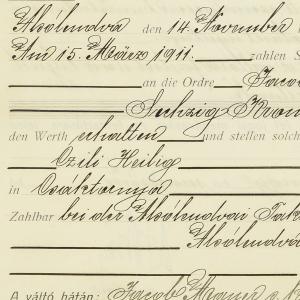 Alsólendva den 14. November
Am 15. März 1911. zahlen S
an die Ordre Jaco
Sechzig Kron
den Werth erhalten und stellen solch
Czili Heilig
in Csáktornya
Zahlbar bei der Alsólendvai Tak
Alsólendva
A váltó hátán: Jacob